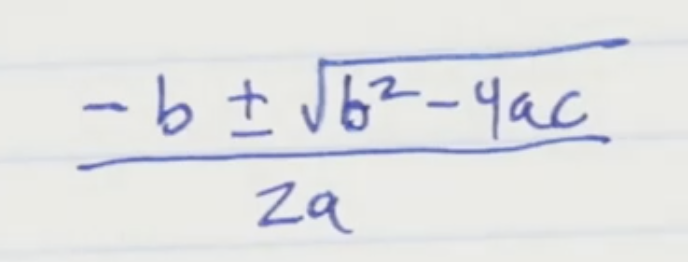 -b ± √b²-4ac
2a